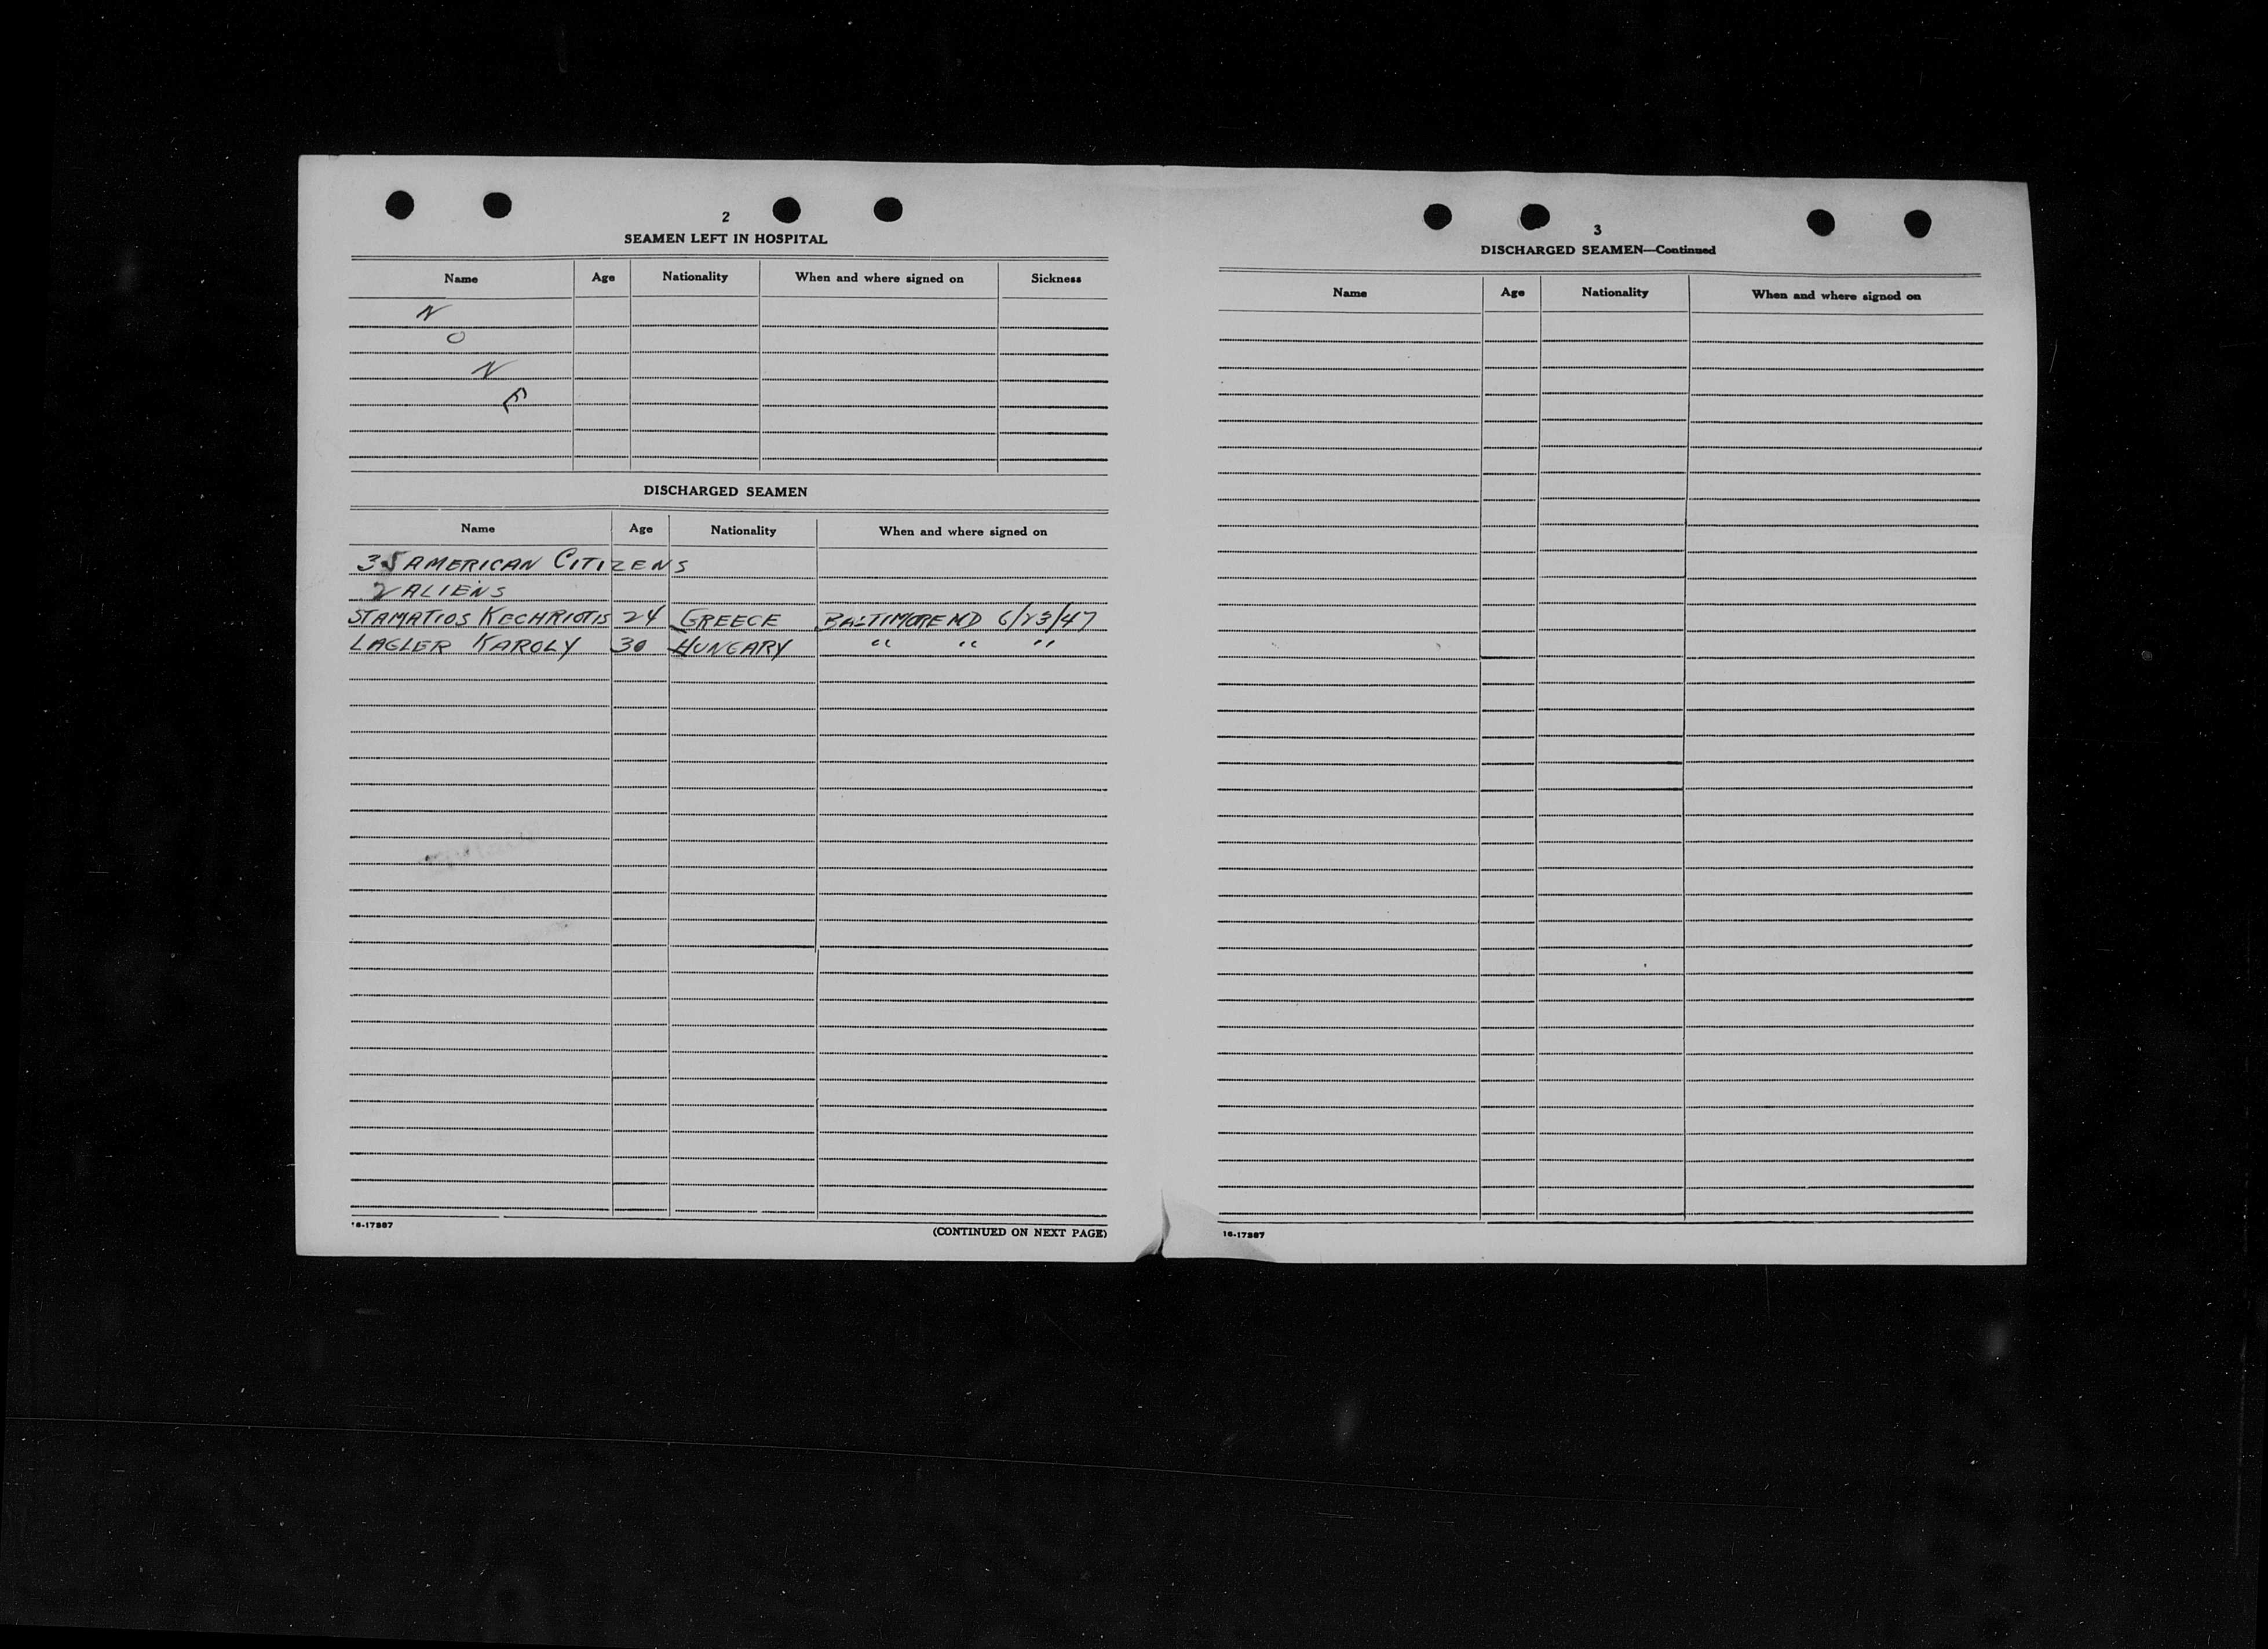 2
SEAMEN LEFT IN HOSPITAL
Name Age Nationality When and where signed on Sickness
N
O
N
E
DISCHARGED SEAMEN
Name Age Nationality When and where signed on
35 AMERICAN CITIZENS
2 ALIENS
STAMATIOS KECHRIOTIS 24 GREECE BALTIMORE MD 6/23/47
LAGLER KAROLY 30 HUNGARY " " "
16-17887
(CONTINUED ON NEXT PAGE)
3
DISCHARGED SEAMEN—Continued
Name Age Nationality When and where signed on
16-17887